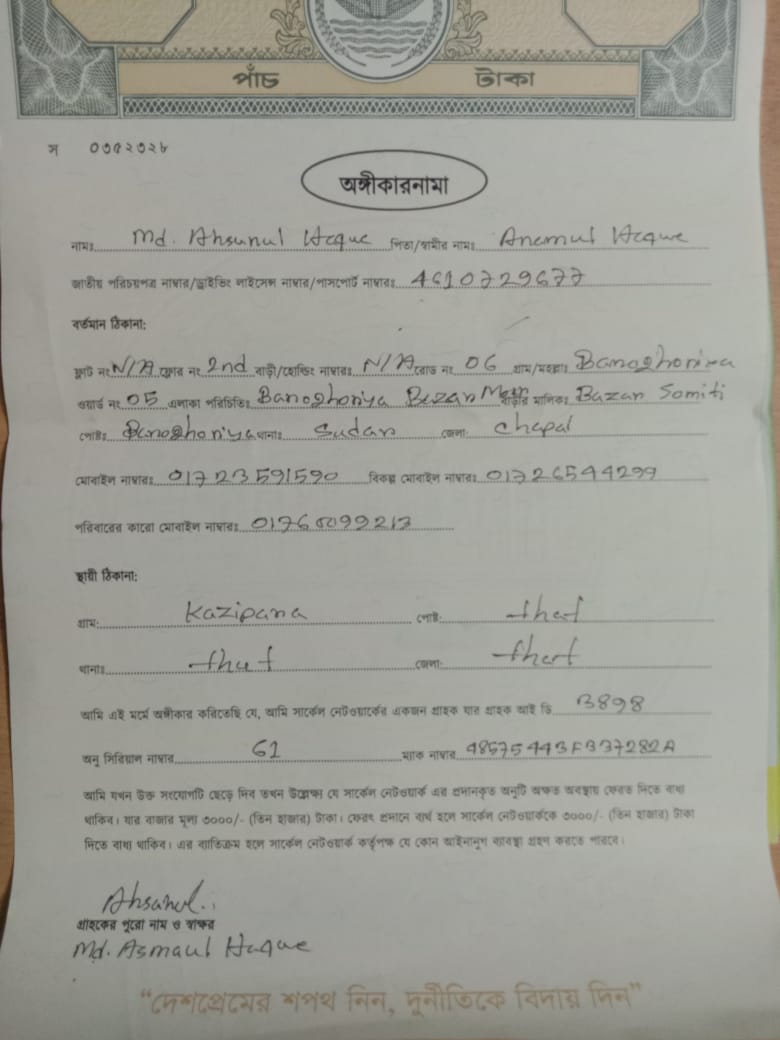 পাঁচ টাকা
স ০৩৫২৩২৮
অঙ্গীকারনামা
নামঃ Md. Ahsunul Haque পিতা/স্বামীর নামঃ Anamul Haque
জাতীয় পরিচয়পত্র নাম্বার/ড্রাইভিং লাইসেন্স নাম্বার/পাসপোর্ট নাম্বারঃ 4610729677
বর্তমান ঠিকানা:
ফ্লাট নং N/A ফ্লোর নং 2nd বাড়ী/হোল্ডিং নাম্বারঃ N/A রোড নং 06 গ্রাম/মহল্লাঃ Banoghoriya
ওয়ার্ড নং 05 এলাকা পরিচিতিঃ Banoghoriya Bazar বাড়ীর মালিকঃ Bazar Somiti
পোষ্টঃ Banoghoriya থানাঃ Sudar জেলাঃ Chapai
মোবাইল নাম্বারঃ 01723591590 বিকল্প মোবাইল নাম্বারঃ 01726544299
পরিবারের কারো মোবাইল নাম্বারঃ
স্থায়ী ঠিকানা:
গ্রাম: Kazipara পোষ্ট:
থানাঃ জেলা:
আমি এই মর্মে অঙ্গীকার করিতেছি যে, আমি সার্কেল নেটওয়ার্কের একজন গ্রাহক যার গ্রাহক আই ডি B898
অনু সিরিয়াল নাম্বার 61 ম্যাক নাম্বার 48575443FB37282A
আমি যখন উক্ত সংযোগটি ছেড়ে দিব তখন উল্লেক্ষ্য যে সার্কেল নেটওয়ার্ক এর প্রদানকৃত অনুটি অক্ষত অবস্থায় ফেরত দিতে বাধ্য
থাকিব। যার বাজার মূল্য ৩০০০/- (তিন হাজার) টাকা। ফেরৎ প্রদানে ব্যর্থ হলে সার্কেল নেটওয়ার্ককে ৩০০০/- (তিন হাজার) টাকা
দিতে বাধ্য থাকিব। এর ব্যতিক্রম হলে সার্কেল নেটওয়ার্ক কর্তৃপক্ষ যে কোন আইনানুগ ব্যবস্থা গ্রহণ করতে পারবে।
Ahsanul
গ্রাহকের পুরো নাম ও স্বাক্ষর
Md. Asmaul Haque
“দেশপ্রেমের শপথ নিন, দুর্নীতিকে বিদায় দিন”